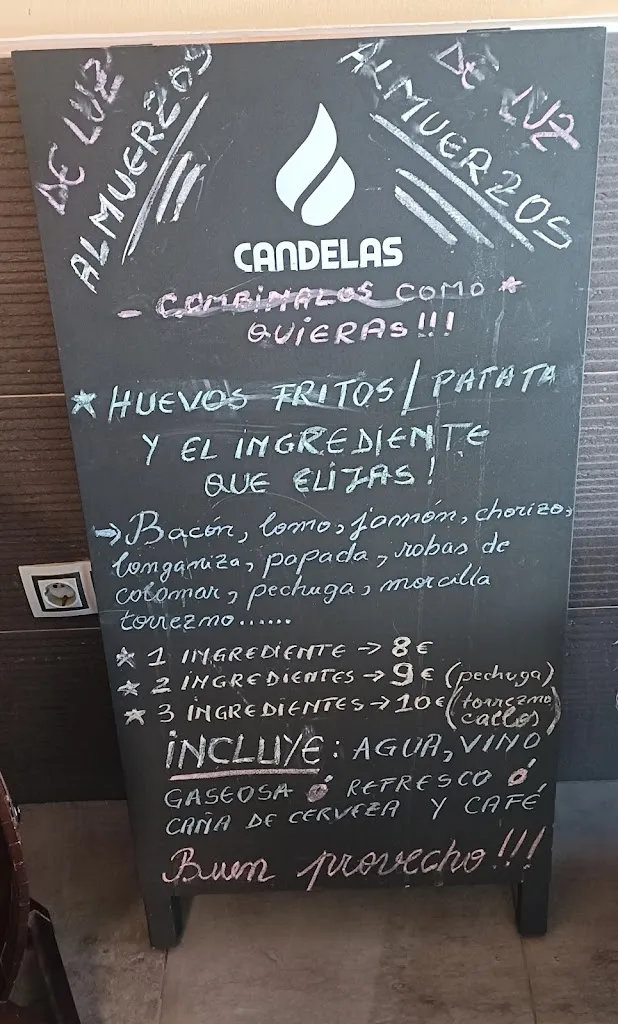 DE LUZ
ALMUERZOS
DE LUZ
ALMUERZOS
CANDELAS
- COMBINALOS COMO *
QUIERAS!!!
* HUEVOS FRITOS / PATATA
Y EL INGREDIENTE
QUE ELIJAS!
→ Bacón, lomo, jamón, chorizo,
longaniza, papada, robas de
colomar, pechuga, morcilla
torrezno......
* 1 INGREDIENTE → 8€
* 2 INGREDIENTES → 9€ (pechuga)
* 3 INGREDIENTES → 10€ (torrezno
callos)
INCLUYE: AGUA, VINO
GASEOSA ó REFRESCO ó
CAÑA DE CERVEZA Y CAFÉ
Buen provecho!!!